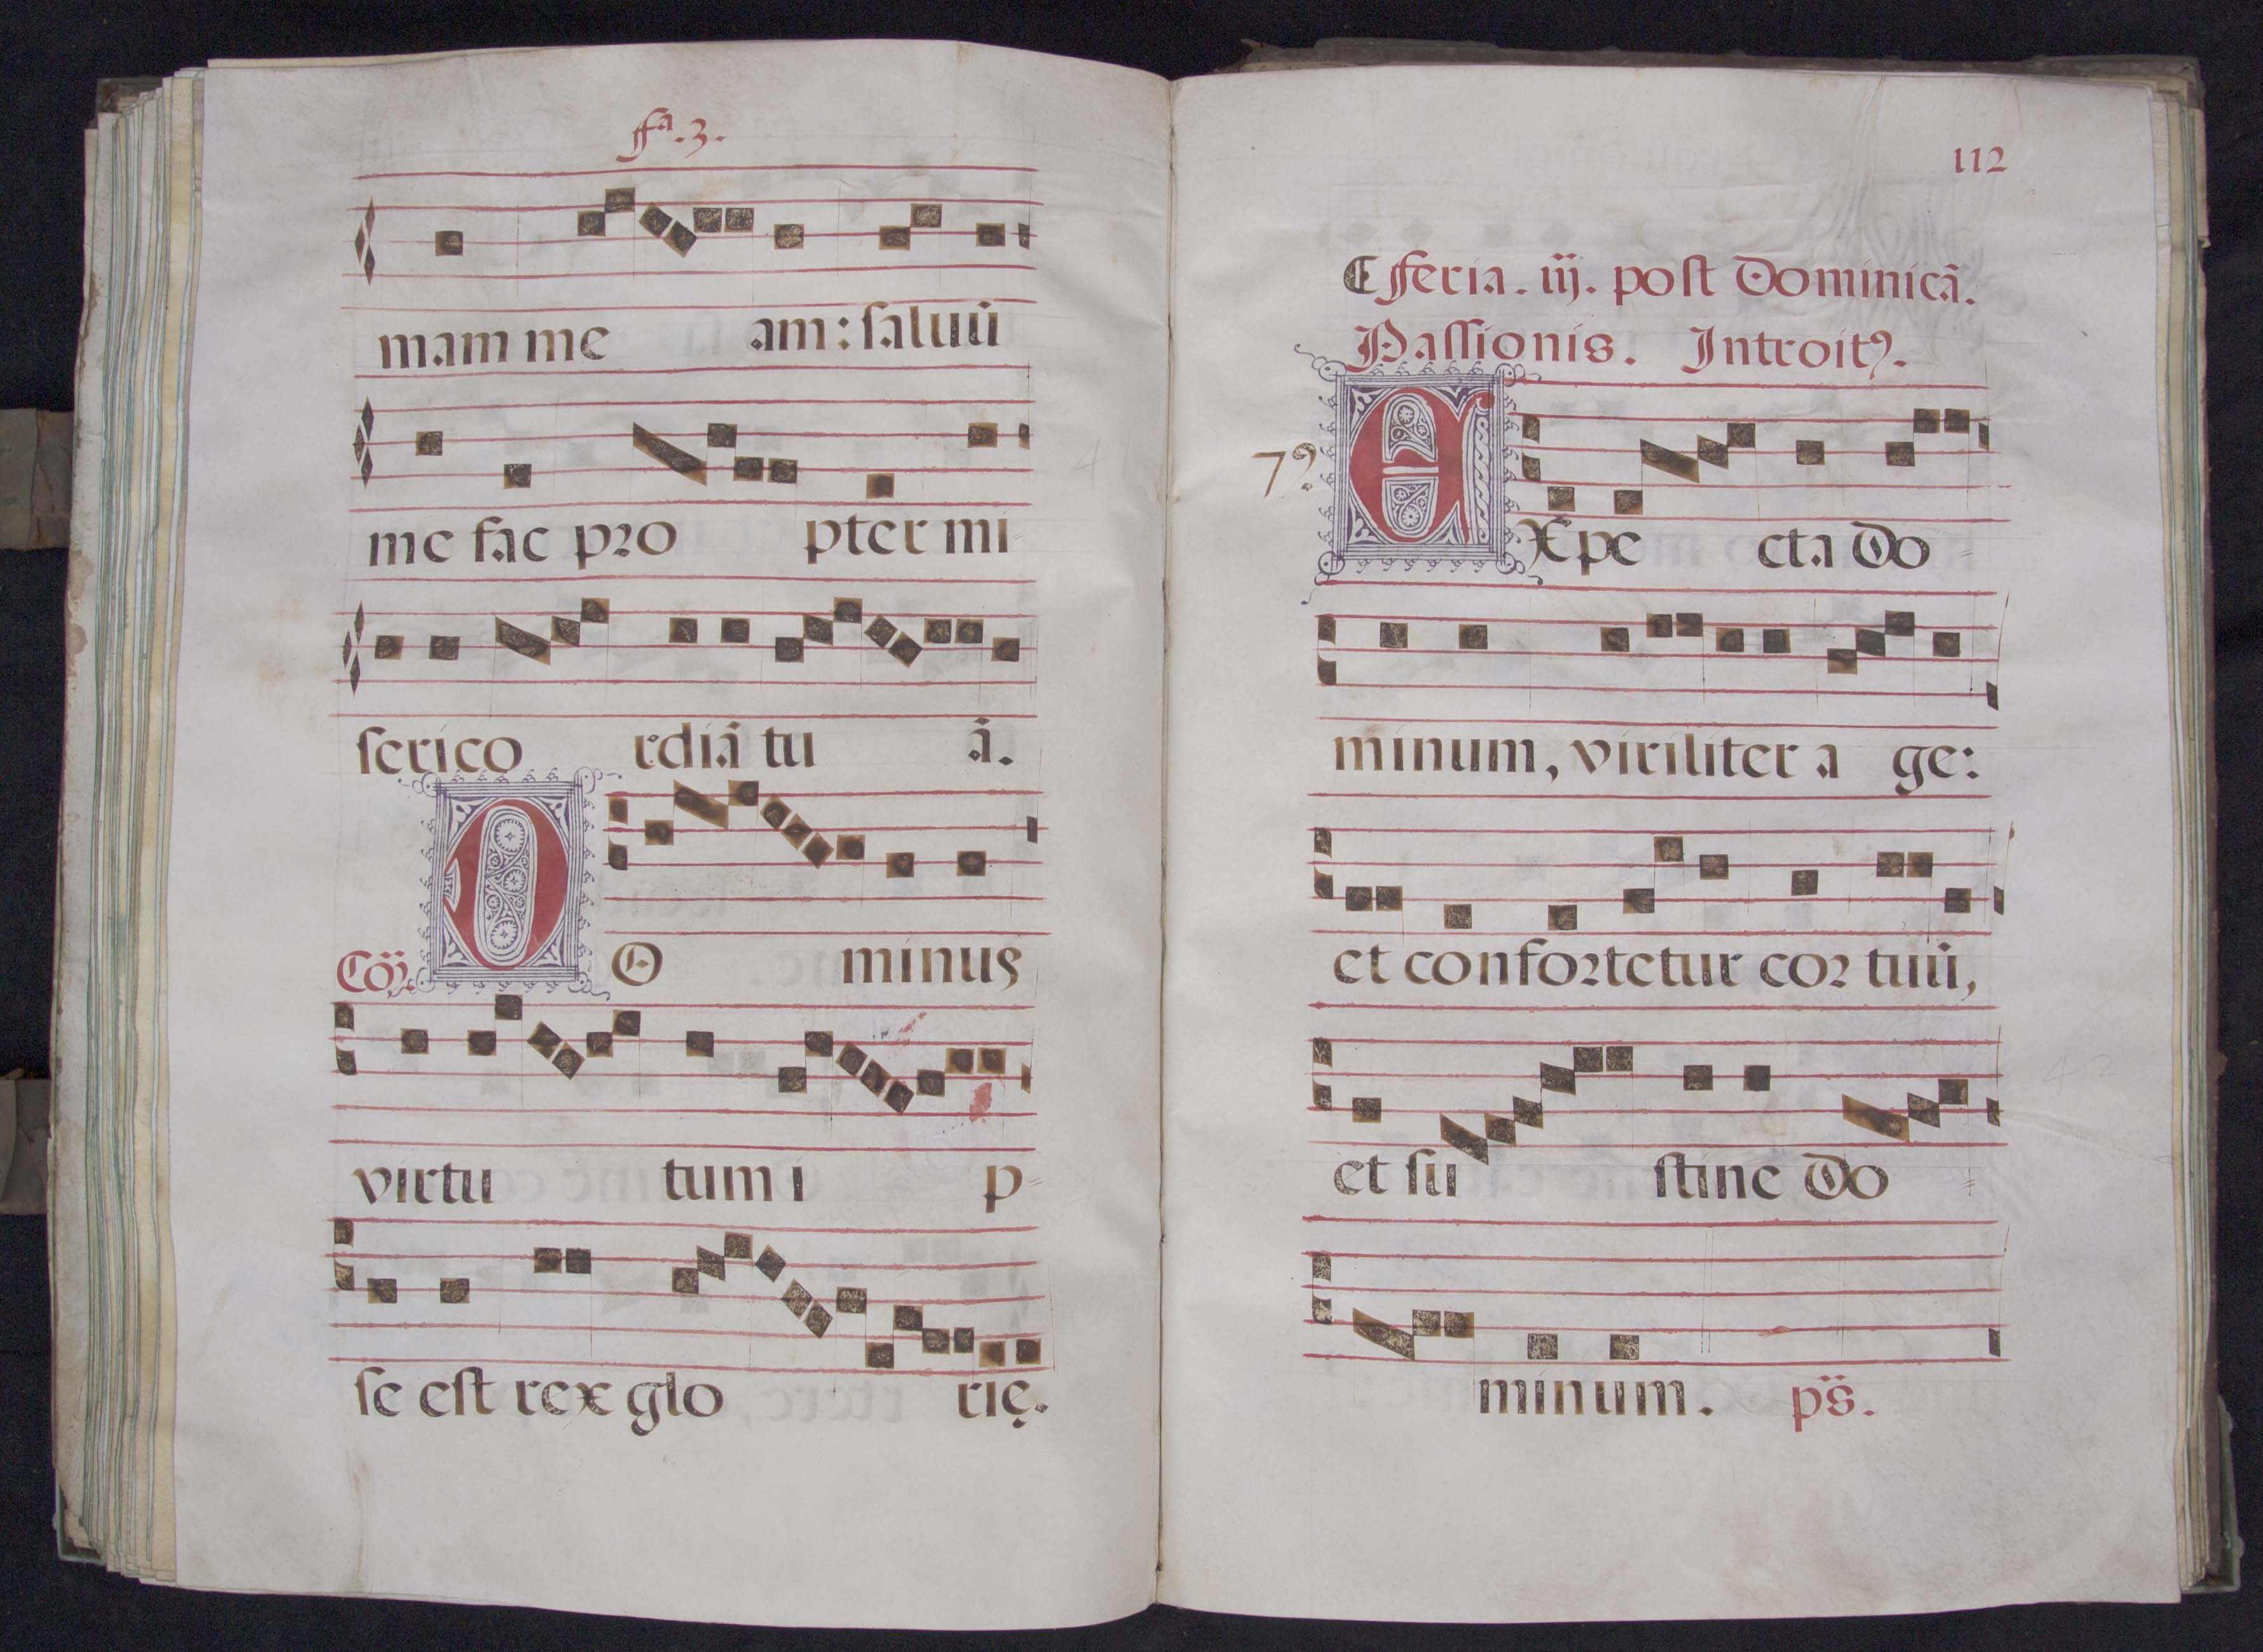 fª.3.
mam me am: saluū
me fac pro pter mi=
serico rdiā tu ā.
Cō. DO minus
virtu tum i p=
se est rex glo rię.
112
Feria. iij. post Dominicā.
Passionis. Introitꝰ.
7?
EXpe cta Do=
minum, viriliter a ge:
et confortetur cor tuū,
et su stine Do=
minum. ps.